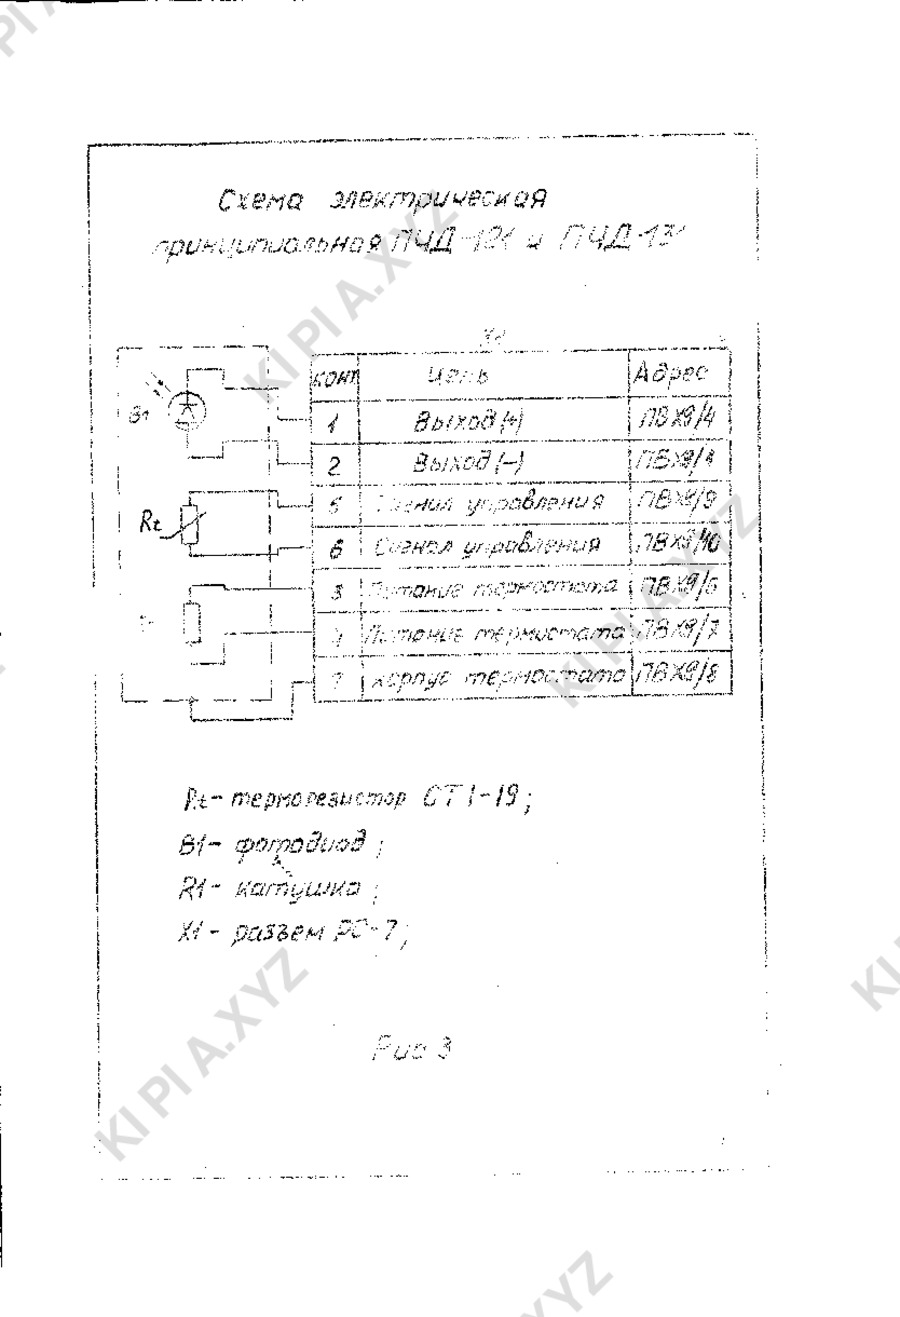 KIPIA.XYZ
Схема электрическая
принципиальная ПЧД-121 и ПЧД-131
X1
конт Цепь Адрес
1 Выход (+) ПВХ9/4
2 Выход (-)
5 Сигнал управления ПВХ9/9
6 Сигнал управления ПВХ9/10
3 Питание термостата ПВХ9/6
4 Питание термостата ПВХ9/7
7 Корпус термостата ПВХ9/8
B1
Rt
Rt- терморезистор СТ1-19;
B1- фотодиод;
R1- катушка;
X1- разъем РС-7;
Рис 3
KIPIA.XYZ
KIPIA.XYZ